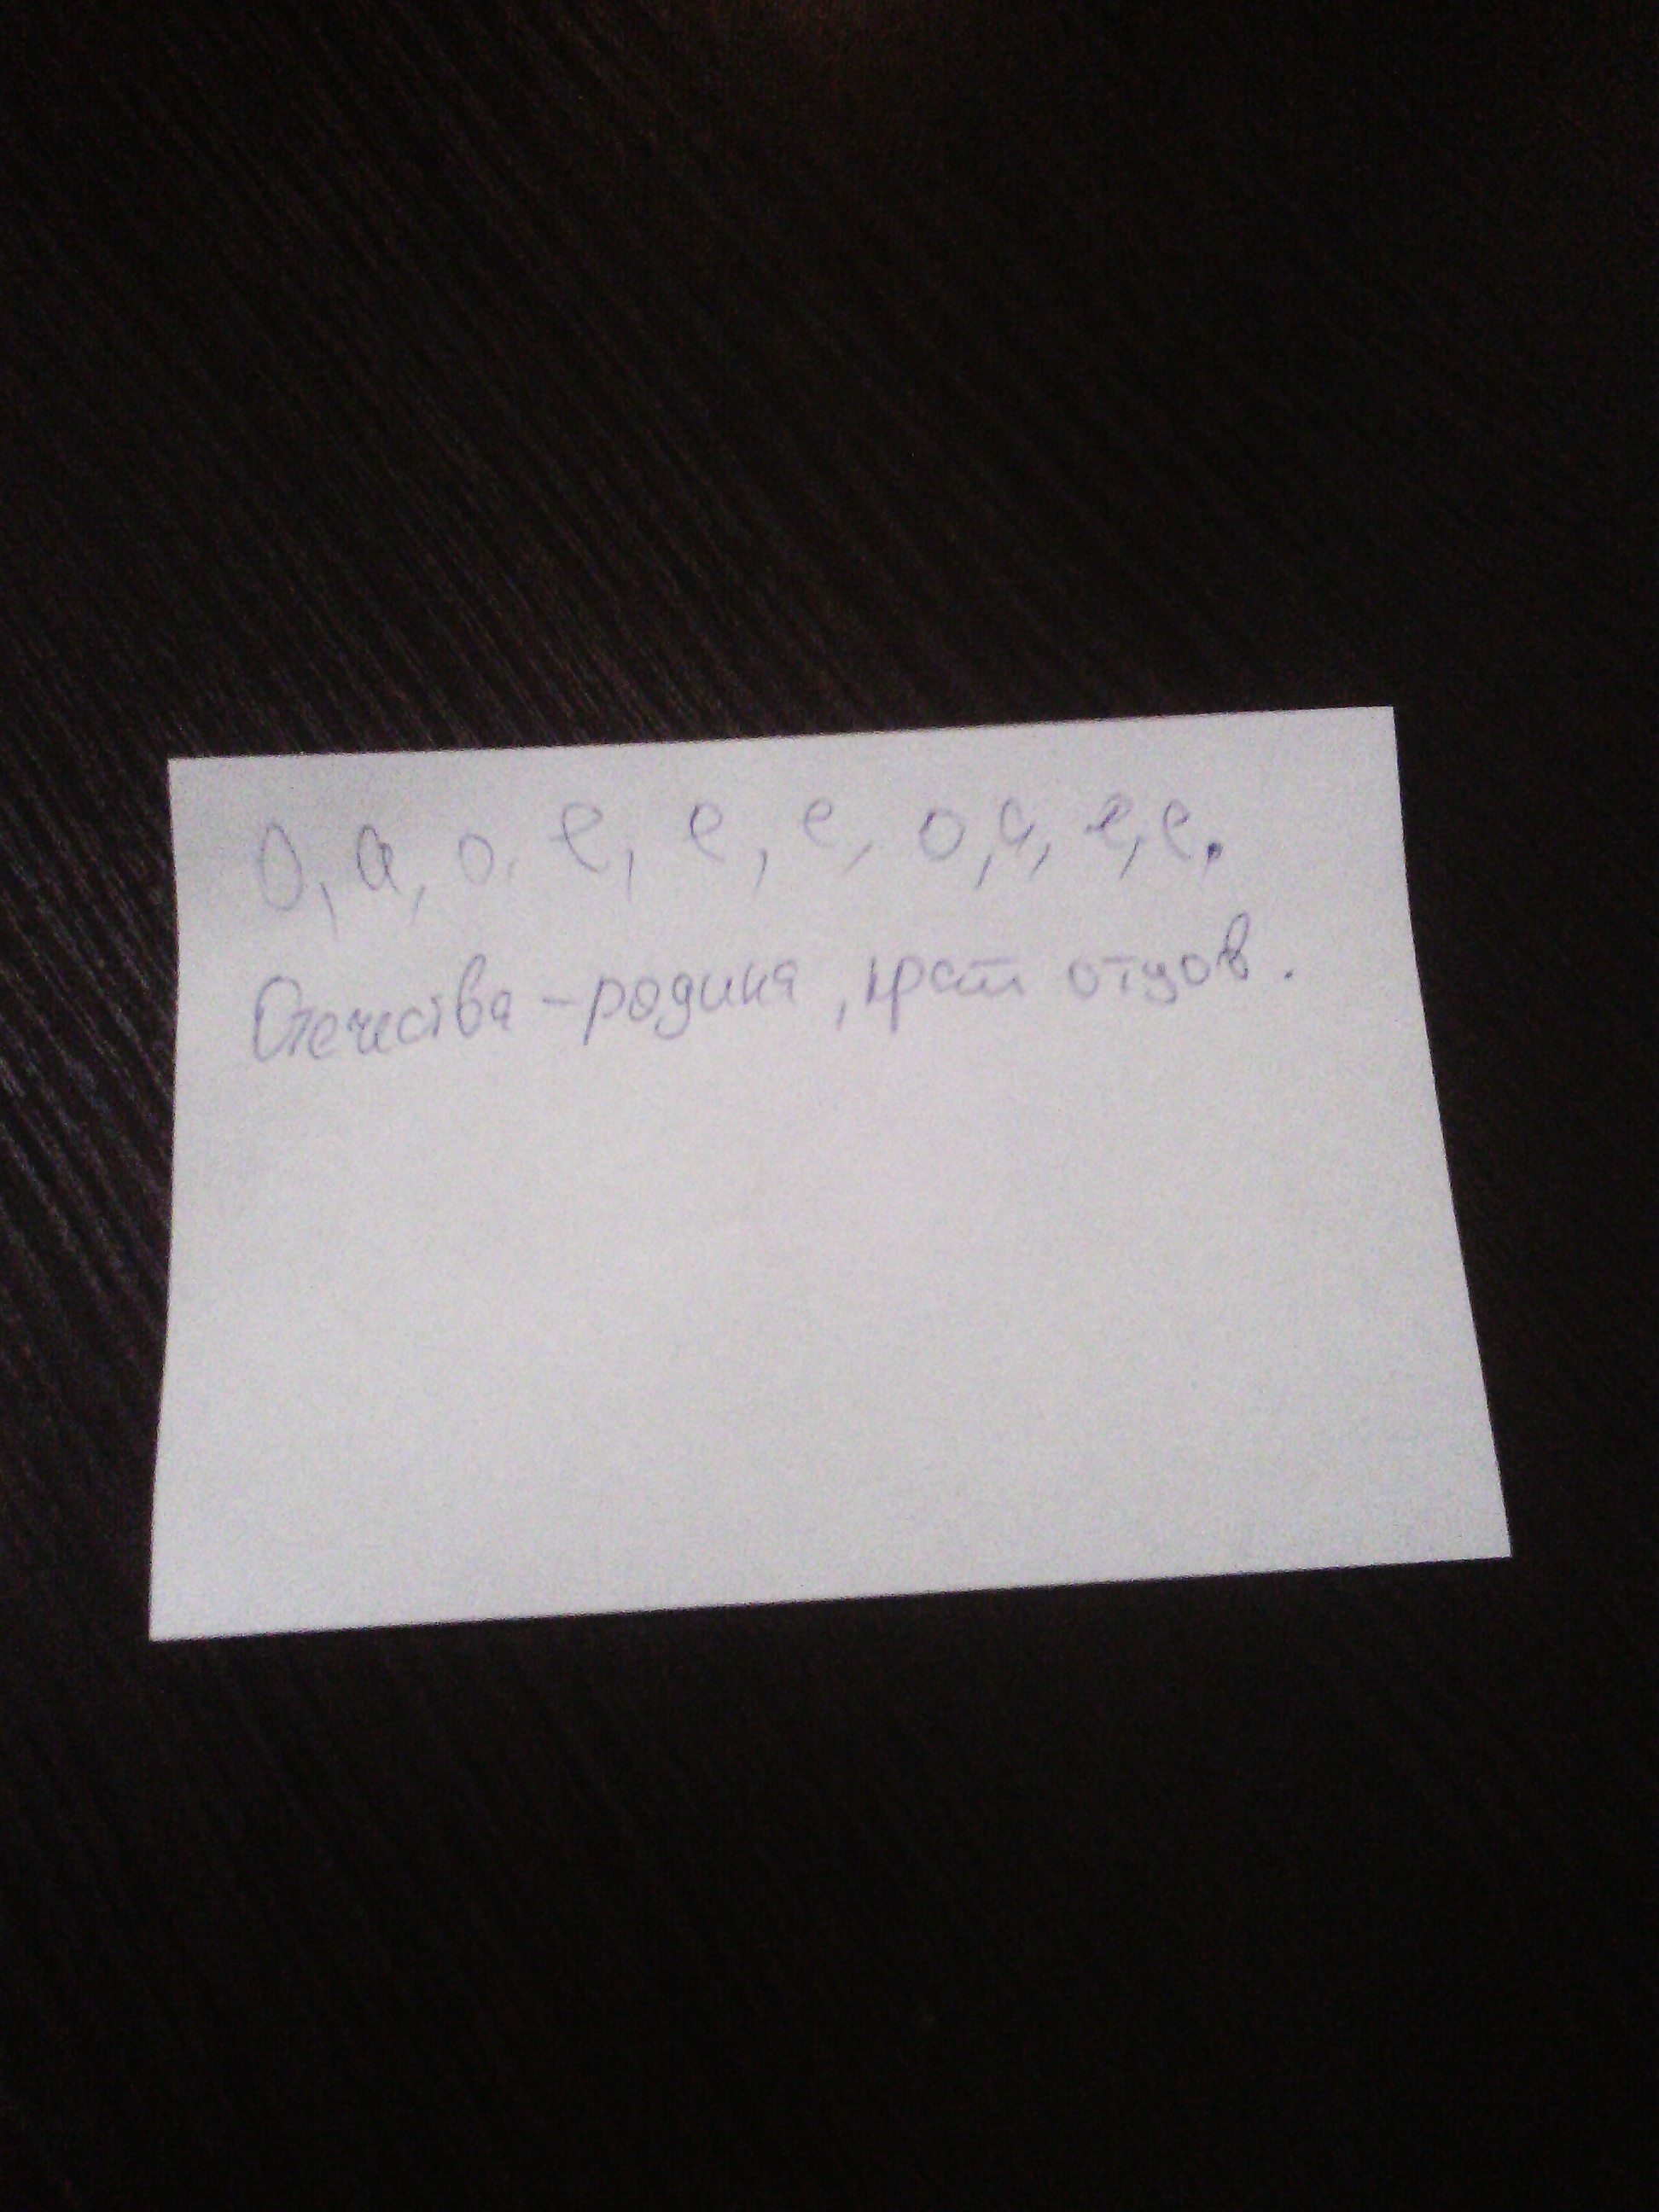 О, а, о, е, е, е, о, а, е, е.
Отечества - родина, отцов.